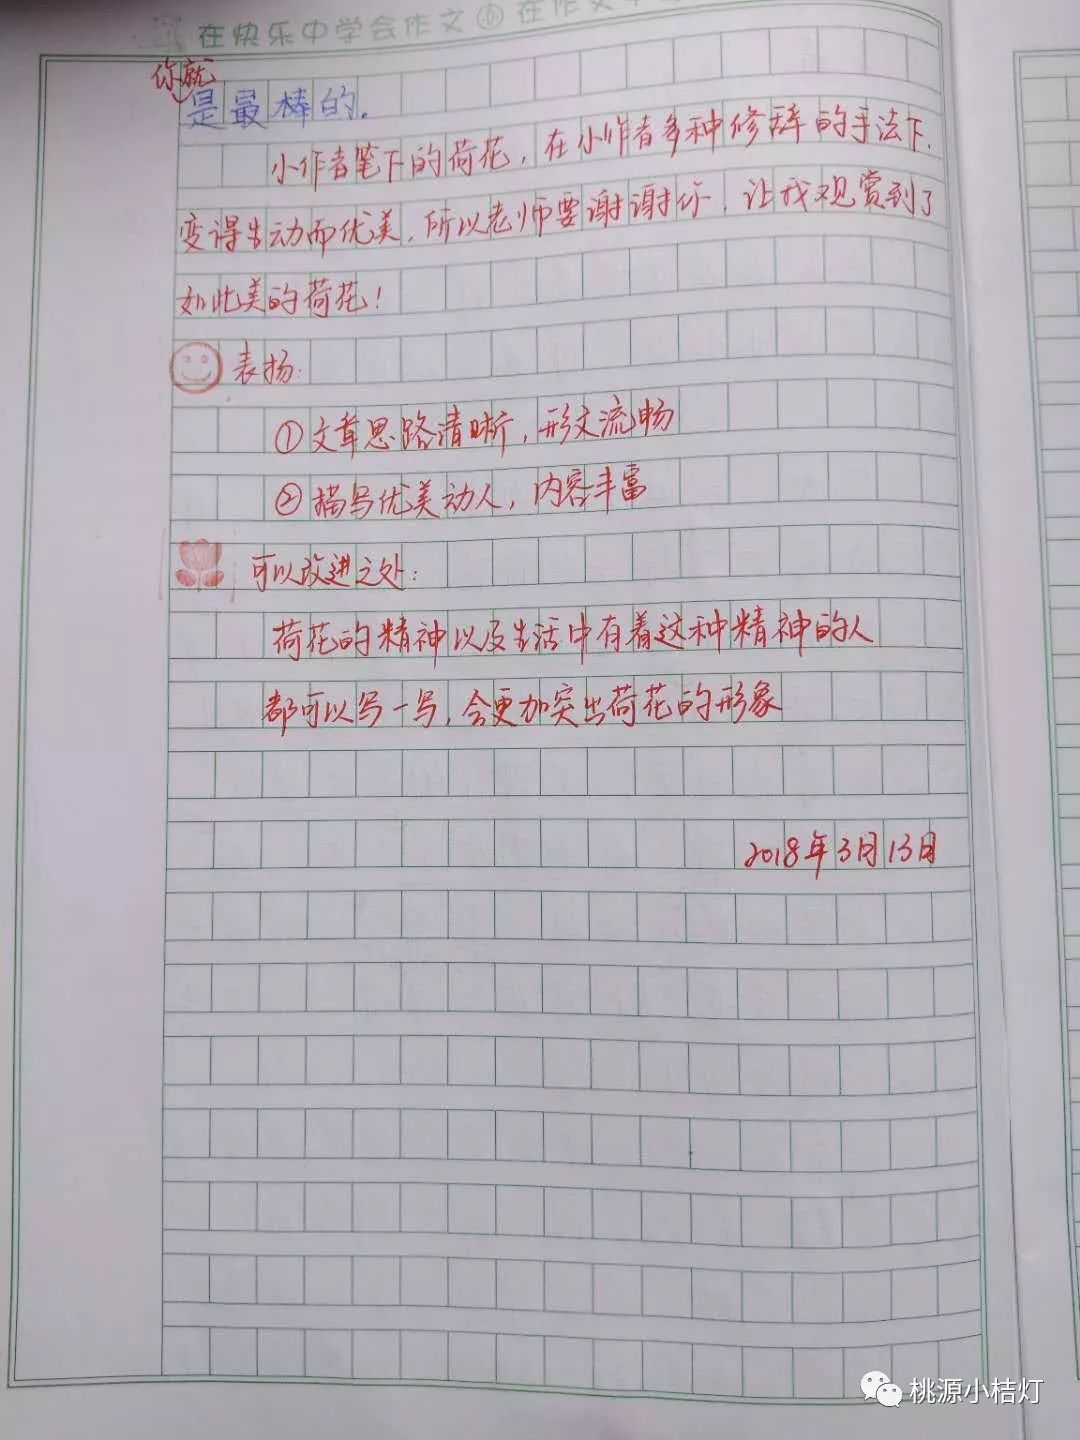 在快乐中学会作文 在作文
你就
是最棒的.
小作者笔下的荷花，在小作者多种修辞的手法下.
变得生动而优美,所以老师要谢谢你！让我观赏到了
如此美的荷花！
表扬:
①文章思路清晰，形文流畅
②描写优美动人，内容丰富
可以改进之处：
荷花的精神以及生活中有着这种精神的人
都可以写一写,会更加突出荷花的形象
2018年3月13日
桃源小桔灯